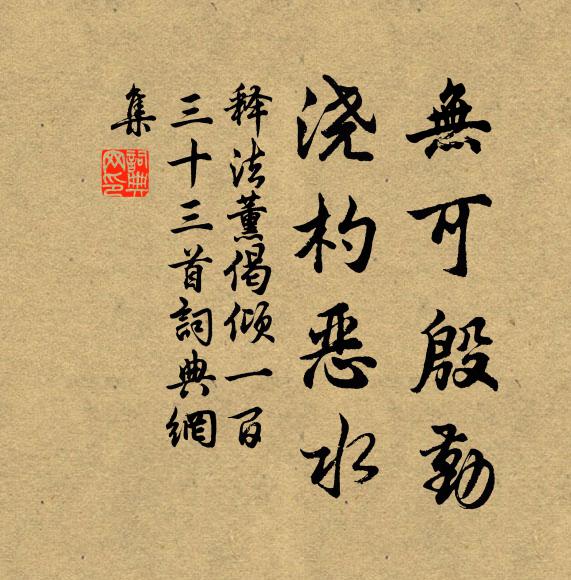 無可殷勤
浇杓恶水
释法薰偈倾一百
三十三首詞典網
集
詞典
网印